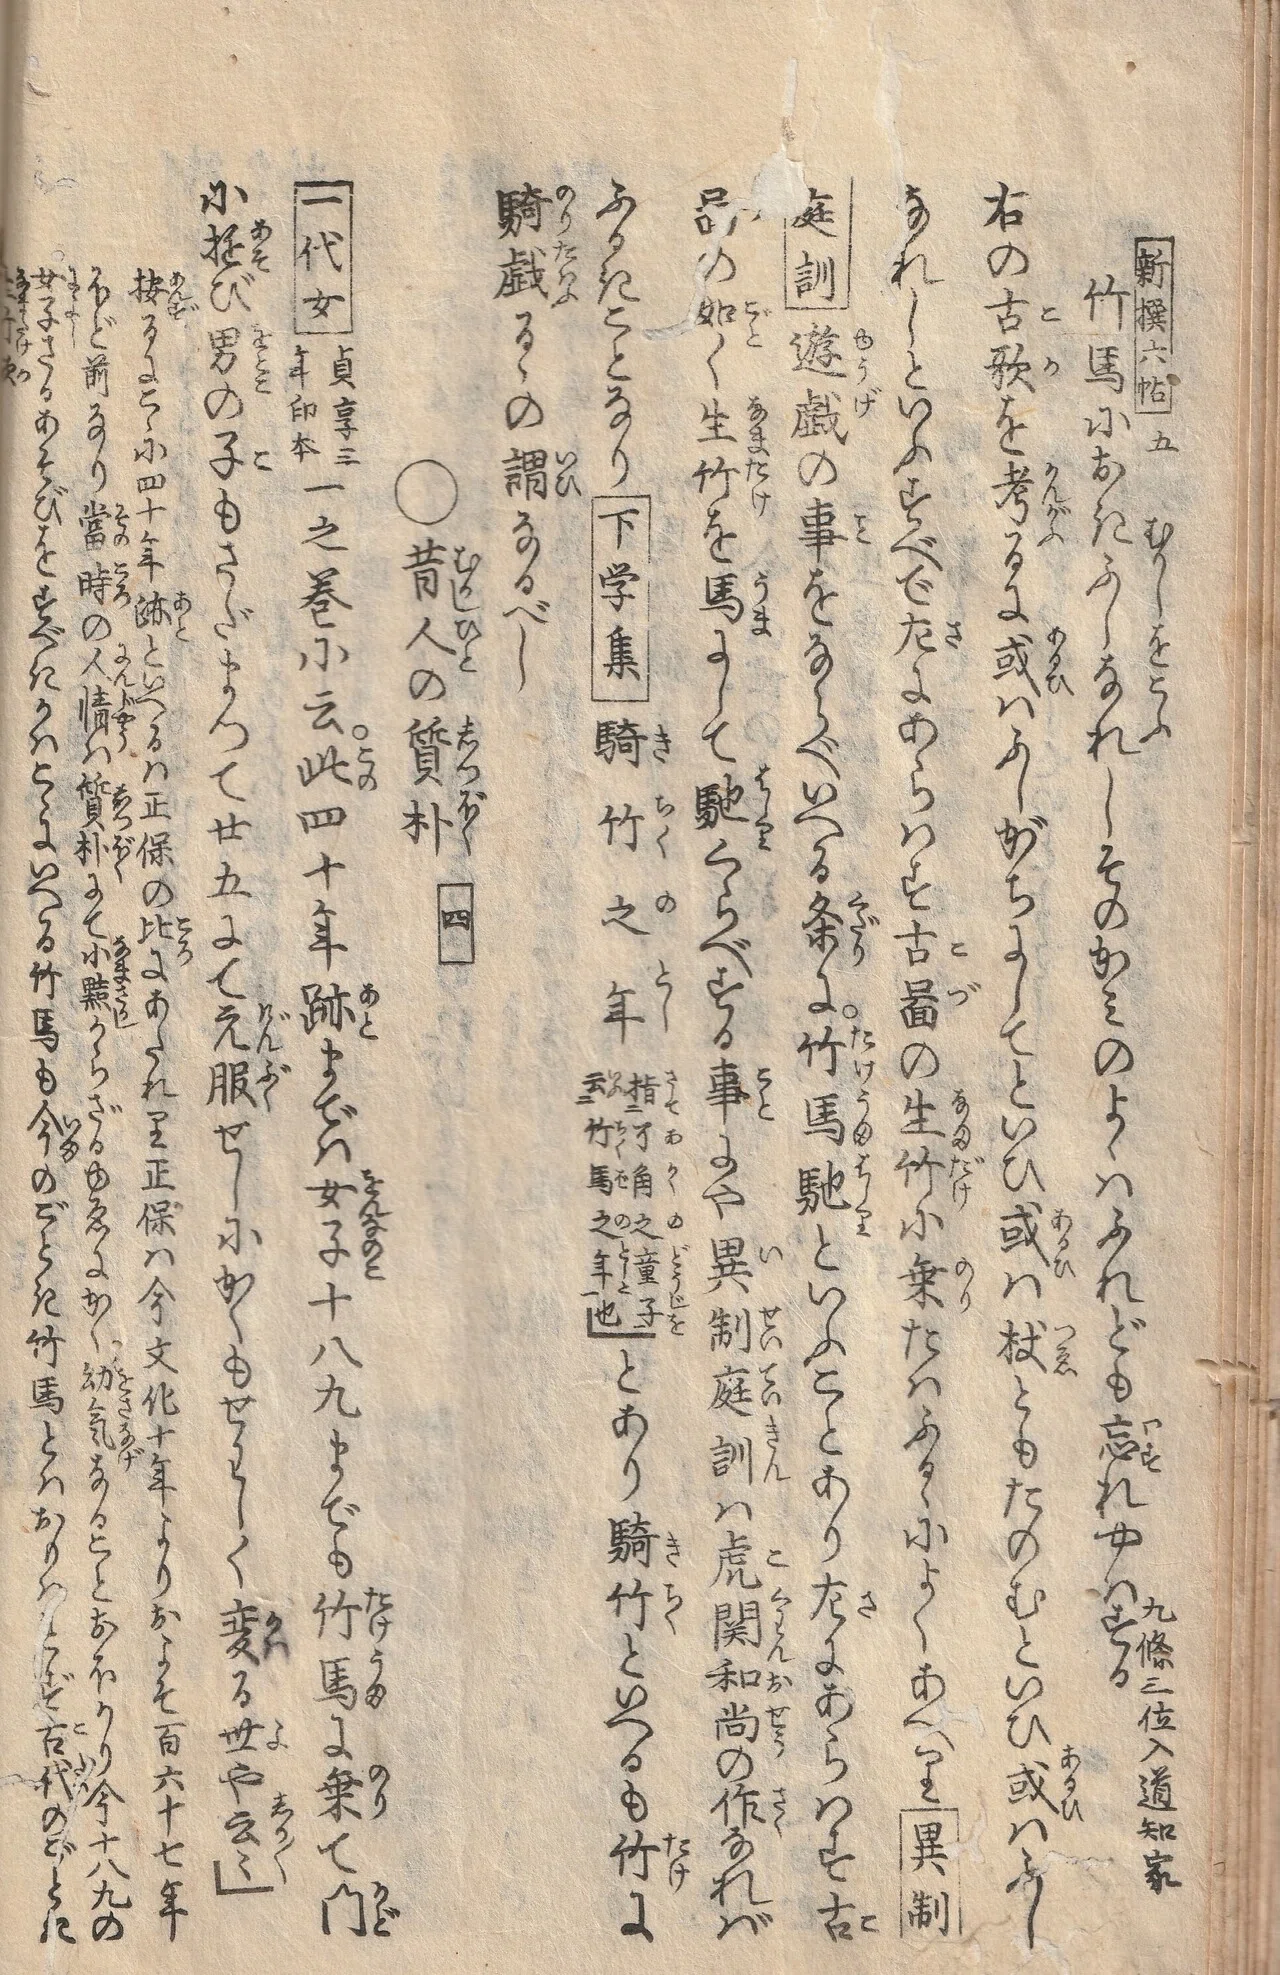 新撰六帖 五 むかしをこふ 九條三位入道知家
竹馬におきふしなれしそのかみのよゝはふれども忘れやはする
右の古歌を考るに或はふしがちにしてといひ或は杖ともたのむといひ或はふし
なれしといふすべて左にあらはす古啚の生竹に乗たはふるゝによくあへり 異制
庭訓 遊戯の事をならべいへる条に。竹馬馳といふことあり左にあらはす古
啚の如く生竹を馬にして馳くらべする事にや異制庭訓は虎関和尚の作なれば
ふるきことなり 下学集 騎竹之年 指二丱角之童子一云二竹馬之年一也」とあり騎竹といへるも竹に
騎戯るゝの謂なるべし
○昔人の質朴 四
一代女 貞享三年印本 一之巻に云。此四十年跡までは女子十八九までも竹馬に乗て門
に遊び男の子もさだまつて廿五にて元服せしにかくもせわしく変る世や云云」
按るにこゝに四十年跡といへるは正保の比にあたれり正保は今文化十年よりおよそ百六十七年
ほど前なり當時の人情は質朴にて小黠からざるゆゑにかく幼気なることおほかり今十八九の
女子さるあそびをすべきかはこゝにいへる竹馬も今のごとき竹馬とはおもはれず古代のごとき